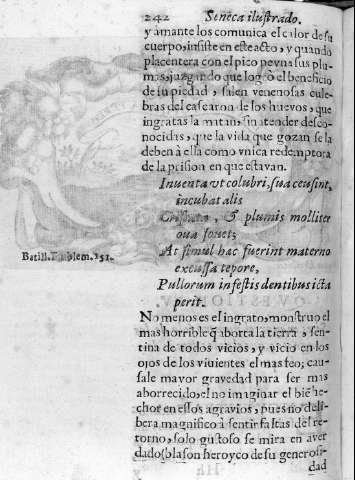 242 Seneca ilustrado.
y amante los comunica el calor de su
cuerpo, insiste en este acto, y quando
placentera con el pico peyna sus plu
mas, juzgando que logrò el beneficio
de su piedad, salen venenosas cule
bras del cascaron de los huevos, que
ingratas la matan, sin atender desco-
nocidas, que la vida que gozan se la
deben à ella como vnica redemptora
de la prision en que estavan.
Inuenta vt colubri, sua
incubat alis
& plumis molliter
oua fouet;
At simul hac fuerint materno
excussa tepore,
Pullorum infestis dentibus icta
perit.
Batill. Emblem. 151.
No menos es el ingrato, monstruo el
mas horrible q̃ aborta la tierra, sen-
tina de todos vicios, y vicio en los
ojos de los viuientes el mas feo; cau-
sale mayor gravedad para ser mas
aborrecido, el no imaginar el bie̅he
chor en estos agravios, pues no deli-
bera magnifico à sentir faltas del re-
torno, solo gustoso se mira en aver
dado (blason heroyco de su generosi-
dad